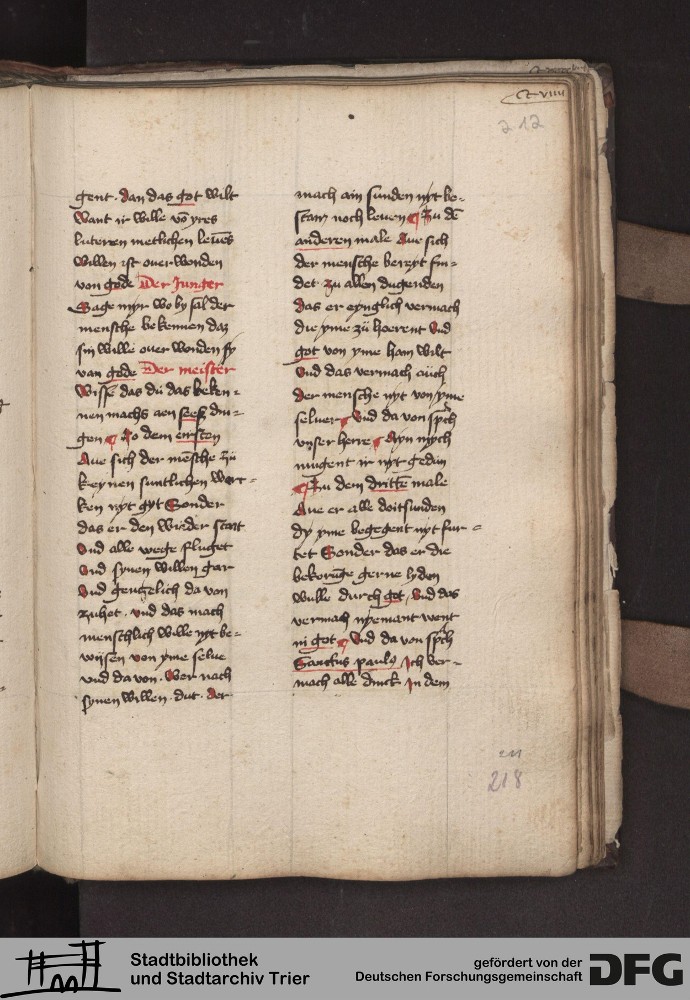 gent. dan das got wilt
want ir wille vō yres
luterren metlichen leuēs
willen ist ouer wonden
von gode Der Junger
Sage myr wo by sal der
mensche bekennen daz
sin wille ouer wonden sy
van gode Der meister
Wisse das du das beken-
nen machs aen sees din-
gen Zo dem eirsten
Aue sich der mēsche zů
keynen suntlichen wer-
ken nyt gyt Sonder
das er den wieder stait
Vnd alle wege fluget
Vnd synen willen gar
Vnd gentzelich da von
zuhet. vnd das mach
menschlich wille nyt be-
wysen von yme selue
vnd da von. Wer nach
synen willen. dut. der
mach ain sunden nyt be-
stayn noch leuen Zu dē
anderen male Aue sich
der mensche bereyt fin-
det zu allen dugenden
das er eynglich vermach
die yme zů hoerent Vnd
got von yme ham wilt
Vnd das vermach auch
der mensche nyt von yme
seluer Vnd da von sp̄ch
vnser herre Ayn mych
mugent ir nyt gedun
Zu dem dritte male
Aue er alle doitsunden
dy yme begegent nyt fur-
tet Sonder das er die
bekorūge gerne lyden
wulle durch got, Vnd das
vermach nyemant went
ni got Vnd da von sp̄ch
Sanctus paulus Ich ver-
mach alle dinck in dem
212
218
Stadtbibliothek
und Stadtarchiv Trier
gefördert von der
Deutschen Forschungsgemeinschaft
DFG